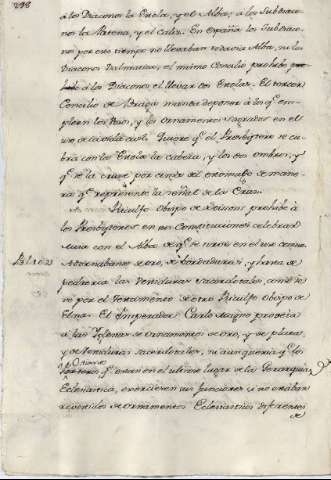 218
á los Diaconos la Estola, y el Alba; á los Subdiaco-
nos la Patena, y el Caliz. En España los Subdiaco-
nos por este tiempo no llevaban todavia Alba, ni los
Diaconos Dalmatica, el mismo Concilio prohibe
á los Diaconos el llevar dos Estolas. El tercer
Concilio de Braga manda deponer á los qe em-
pleen los Vasos, y los Ornamentos sagrados en el
uso de la vida civil. Quiere qe el Presbitero se cu-
bra con la Estola la cabeza, y los dos ombros, y
qe se la cruze por encima del estomago de mane-
ra qe represente la señal de la Cruz.
Riculfo Obispo de Soisons prohibe á
los Presbiteros en sus Constituciones celebrar
Misa con el Alba de qe se usan en el uso comun
Adornabanse de oro, de bordaduras, y hasta de
pedreria las Vestiduras sacerdotales, como se
vé por el Testamento de otro Riculfo Obispo de
Elna. El Emperador Carlo magno proveia
á las Iglesias de Ornamentos de oro, y de plata,
y de Vestiduras sacerdotales, ni aun queria qe los
Ostiarios
qe estan en el ultimo lugar de la Gerarquia
Eclesiastica, exerciesen sus funciones si no estaban
revestidos de Ornamentos Eclesiasticos diferentes
de